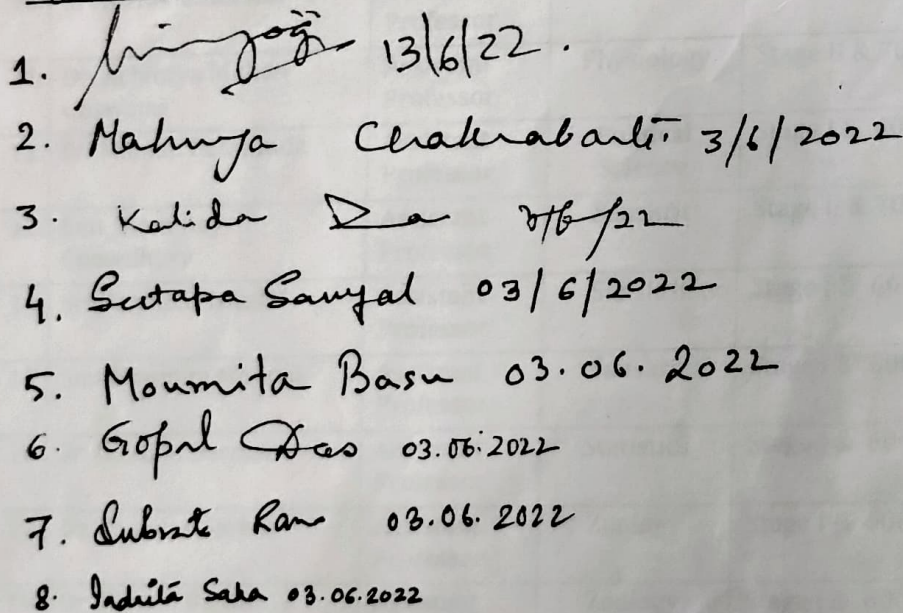 1. 13/6/22.
2. Mahuya Chakrabarti 3/6/2022
3. Kalida Da /22
4. Sutapa Sanyal 03/6/2022
5. Moumita Basu 03.06.2022
6. Gopal Das 03.06.2022
7. Subrata 03.06.2022
8. Indrita Saha 03.06.2022